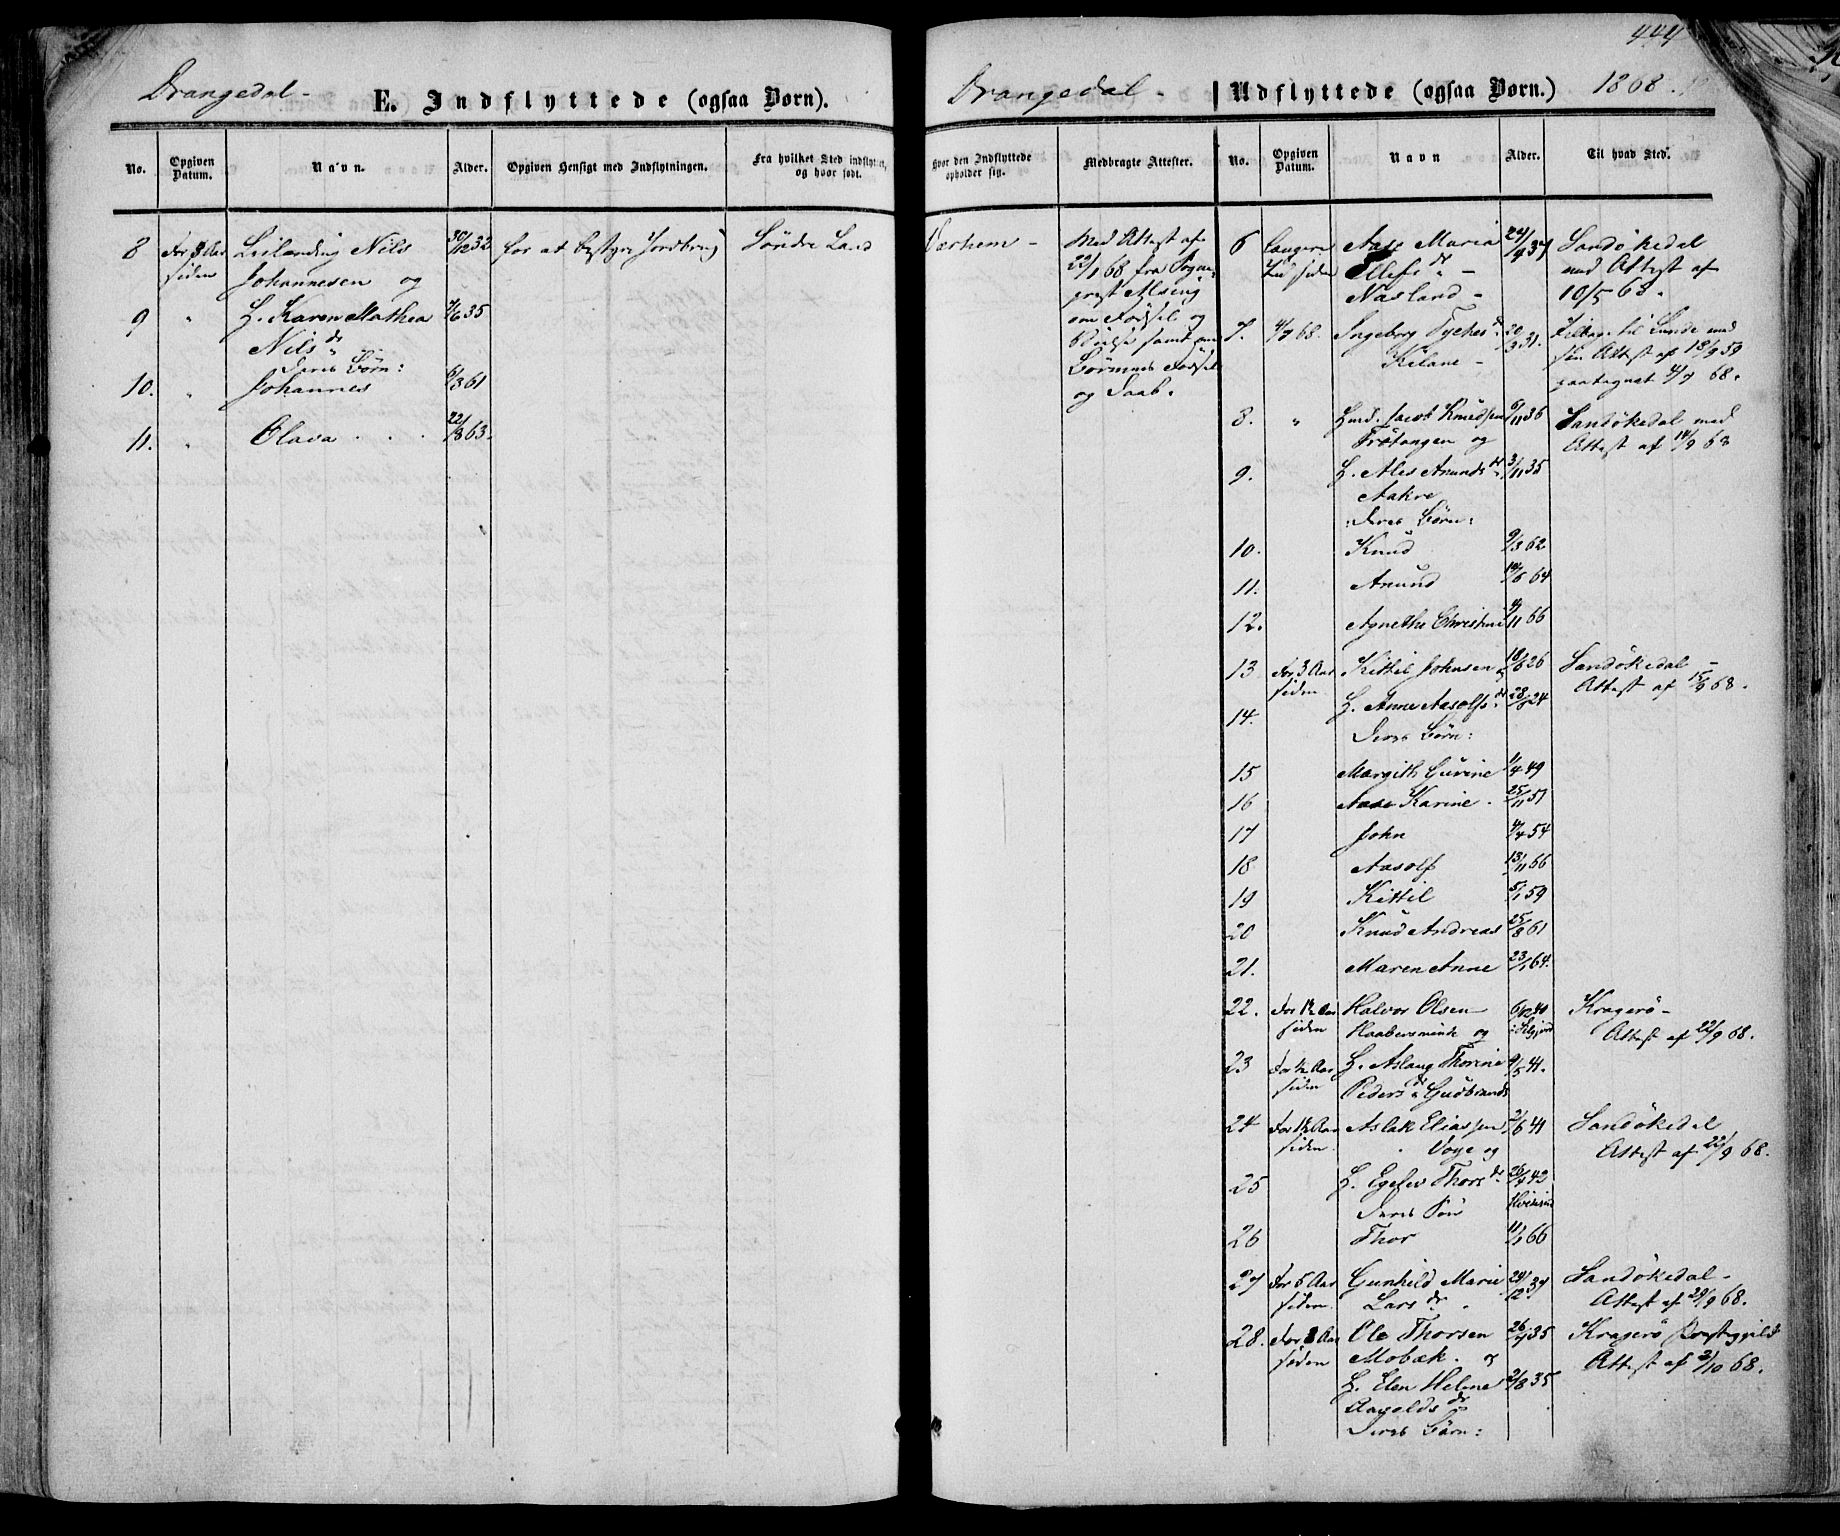 444
Drangedal -
E. Indflyttede (ogsaa Børn).
No.
Opgiven Datum.
Navn.
Alder.
Opgiven Hensigt med Indflytningen.
Fra hvilket Sted indflyttet, og hvor født.
8 For Aar Nils 30/12 32 for at bestyre Jordbrug Søndre Land
siden Johannesen og
9 " H. Karen Mathea /6 35
Nilsdr
Deres Børn:
10. " Johannes 6/3 61
11. " Olava . . . 22/8 63.
Drangedal - Udflyttede (ogsaa Børn.) 1868.
Hvor den Indflyttede opholder sig.
Medbragte Attester.
No.
Opgiven Datum.
Navn
Alder.
Til hvad Sted.
Værhem -
Med Attest af
22/1 68 fra Sogne
prest Alsing
om Fødsel og
Vielse samt om
Børnenes Fødsel
og Daab.
6 Længere Aase Maria 24/4 37 Sandøkedal
Tid siden dr - med Attest af
Nasland - 10/5 68.
7. 4/7 68. Ingeborg Tychesdr 20/3 31. til Lunde med
Kilane - Attest af 18/9 59
paategnet 4/7 68.
8. " Knudsen 6/11 36 Sandøkedal med
Trøtangen og Attest af 14/9 68
9. H. Ales Anundsdr 3/11 35
Aakre
Deres Børn:
10. Knud 9/3 62
11. Anund 14/6 64
12. Agnethe Christine 4/11 66
13. For 3 Aar Kittil Johnsen og 18/6 26 Sandøkedal -
siden Attest af 15/9 68.
14. H. Anne Aasolfsdr 28/8 24
Deres Børn:
15 Margith Gurine 1/4 49
16 Aase Karine . 25/11 51
17 John 4/4 54
18 Aasolf 13/11 56
19 Kittil 5/1 59
20 Knud Andreas 25/8 61
21. Maren Anne 23/1 64.
22. For 1½ Aar Halvor Olsen 6/12 40 Kragerø -
siden og Attest af 22/9 68.
23 For ½ Aar H. Aslaug Thorine 9/5 41.
siden Pedersdr Gudbrands
24 For 1½ Aar Aslak Eliassen 2/6 41 Sandøkedal
siden Voje og Attest af 22/9 68.
25 H. Egelev Thorsdr 26/4 42
Deres Søn Hvideseid
26 Thor 11/1 66
27 For 5 Aar Gunhild Marie 24/12 37 Sandøkedal -
siden Larsdr . Attest af 29/9 68.
28. For Aar Ole Thorsen 26/4 35 Kragerø
siden Mobæk . og Attest af 2/10 68.
H. Elen Helene 2/8 35
dr
Deres Børn: